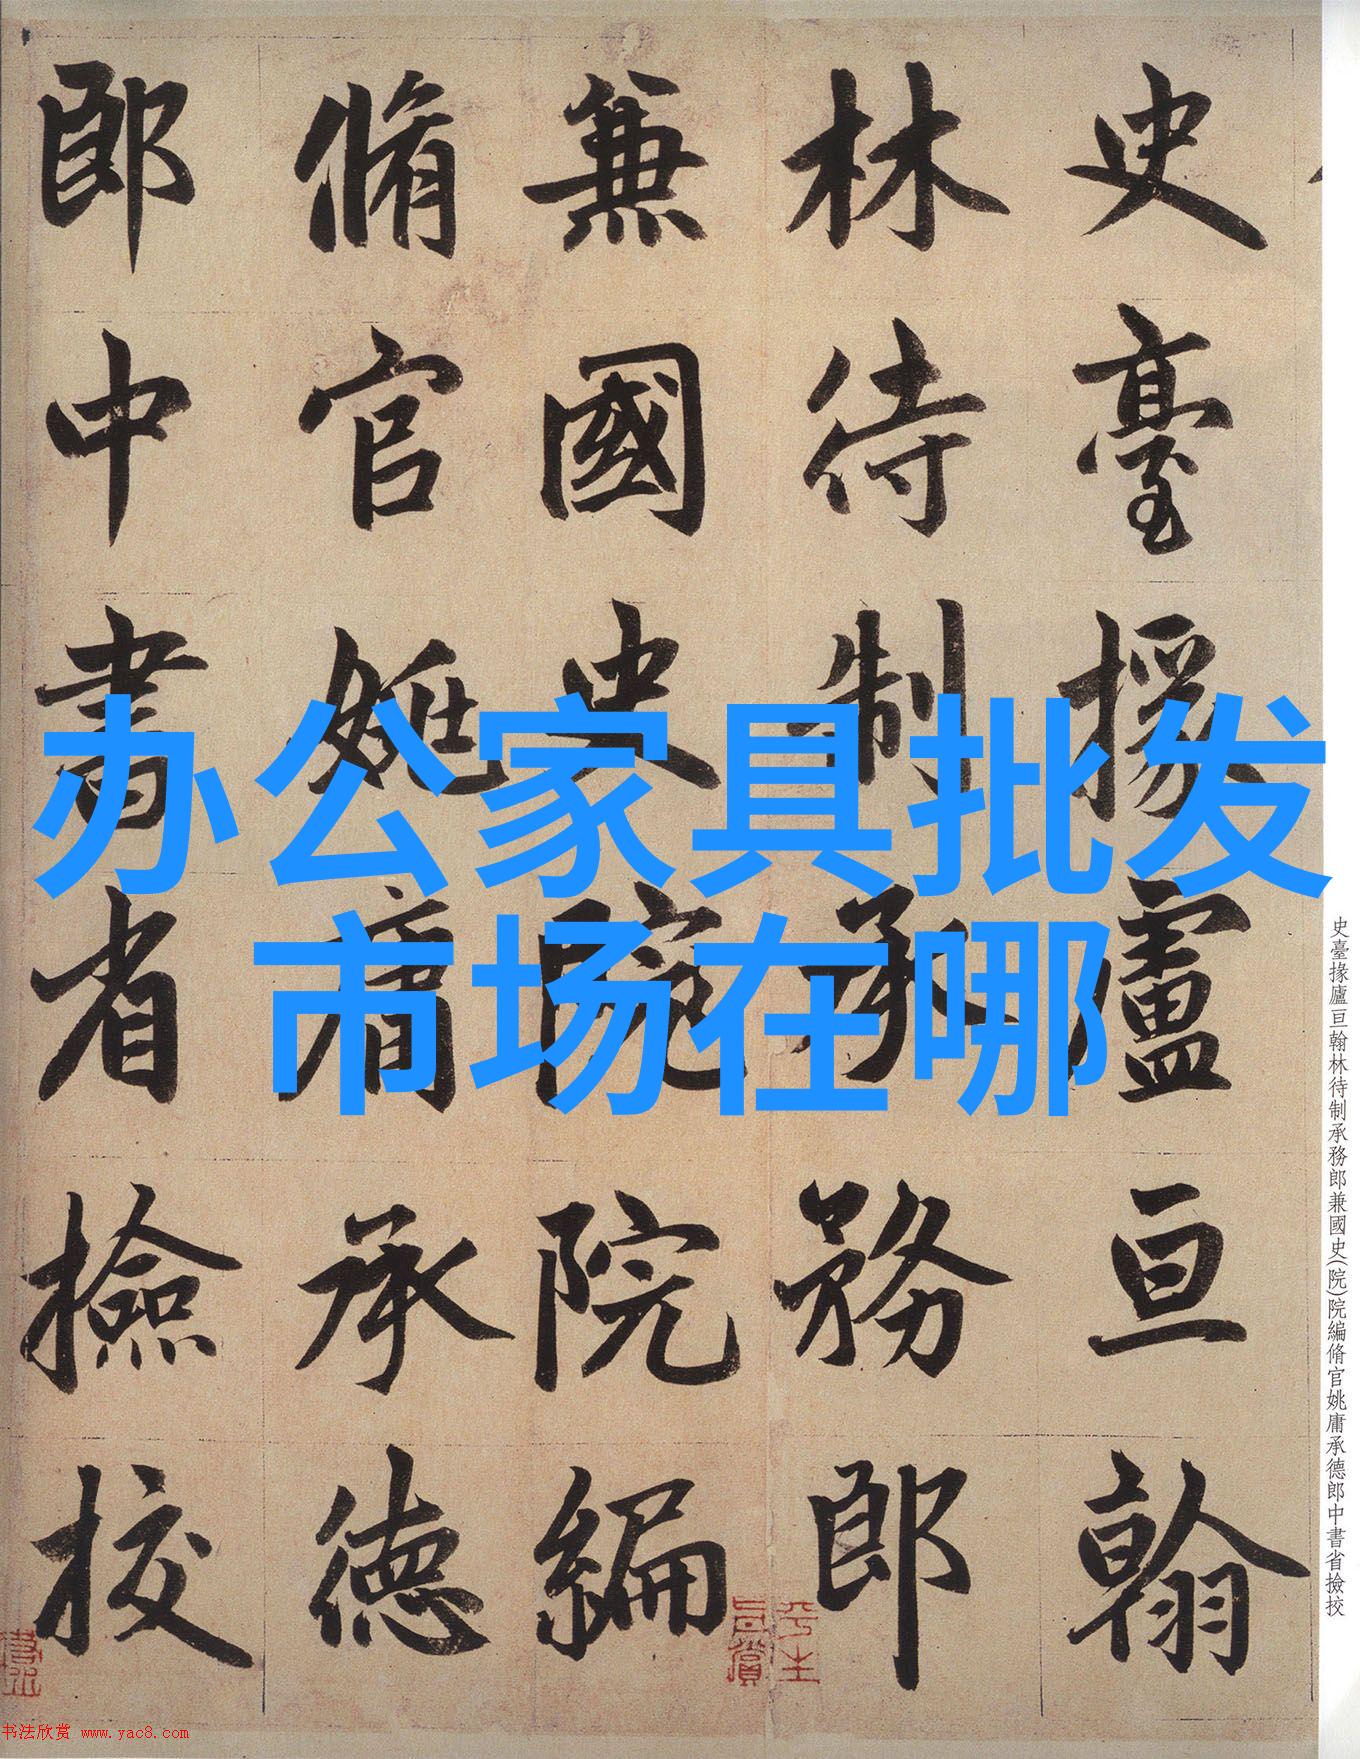 史臺掾廬亘翰
林待制承務郎
兼國史院院編
脩官姚庸承德
郎中書省撿挍
办公家具批发
市场在哪
史臺掾廬亘翰林待制承務郎兼國史(院)院編脩官姚庸承德郎中書省撿挍
书法欣赏 www.yac8.com